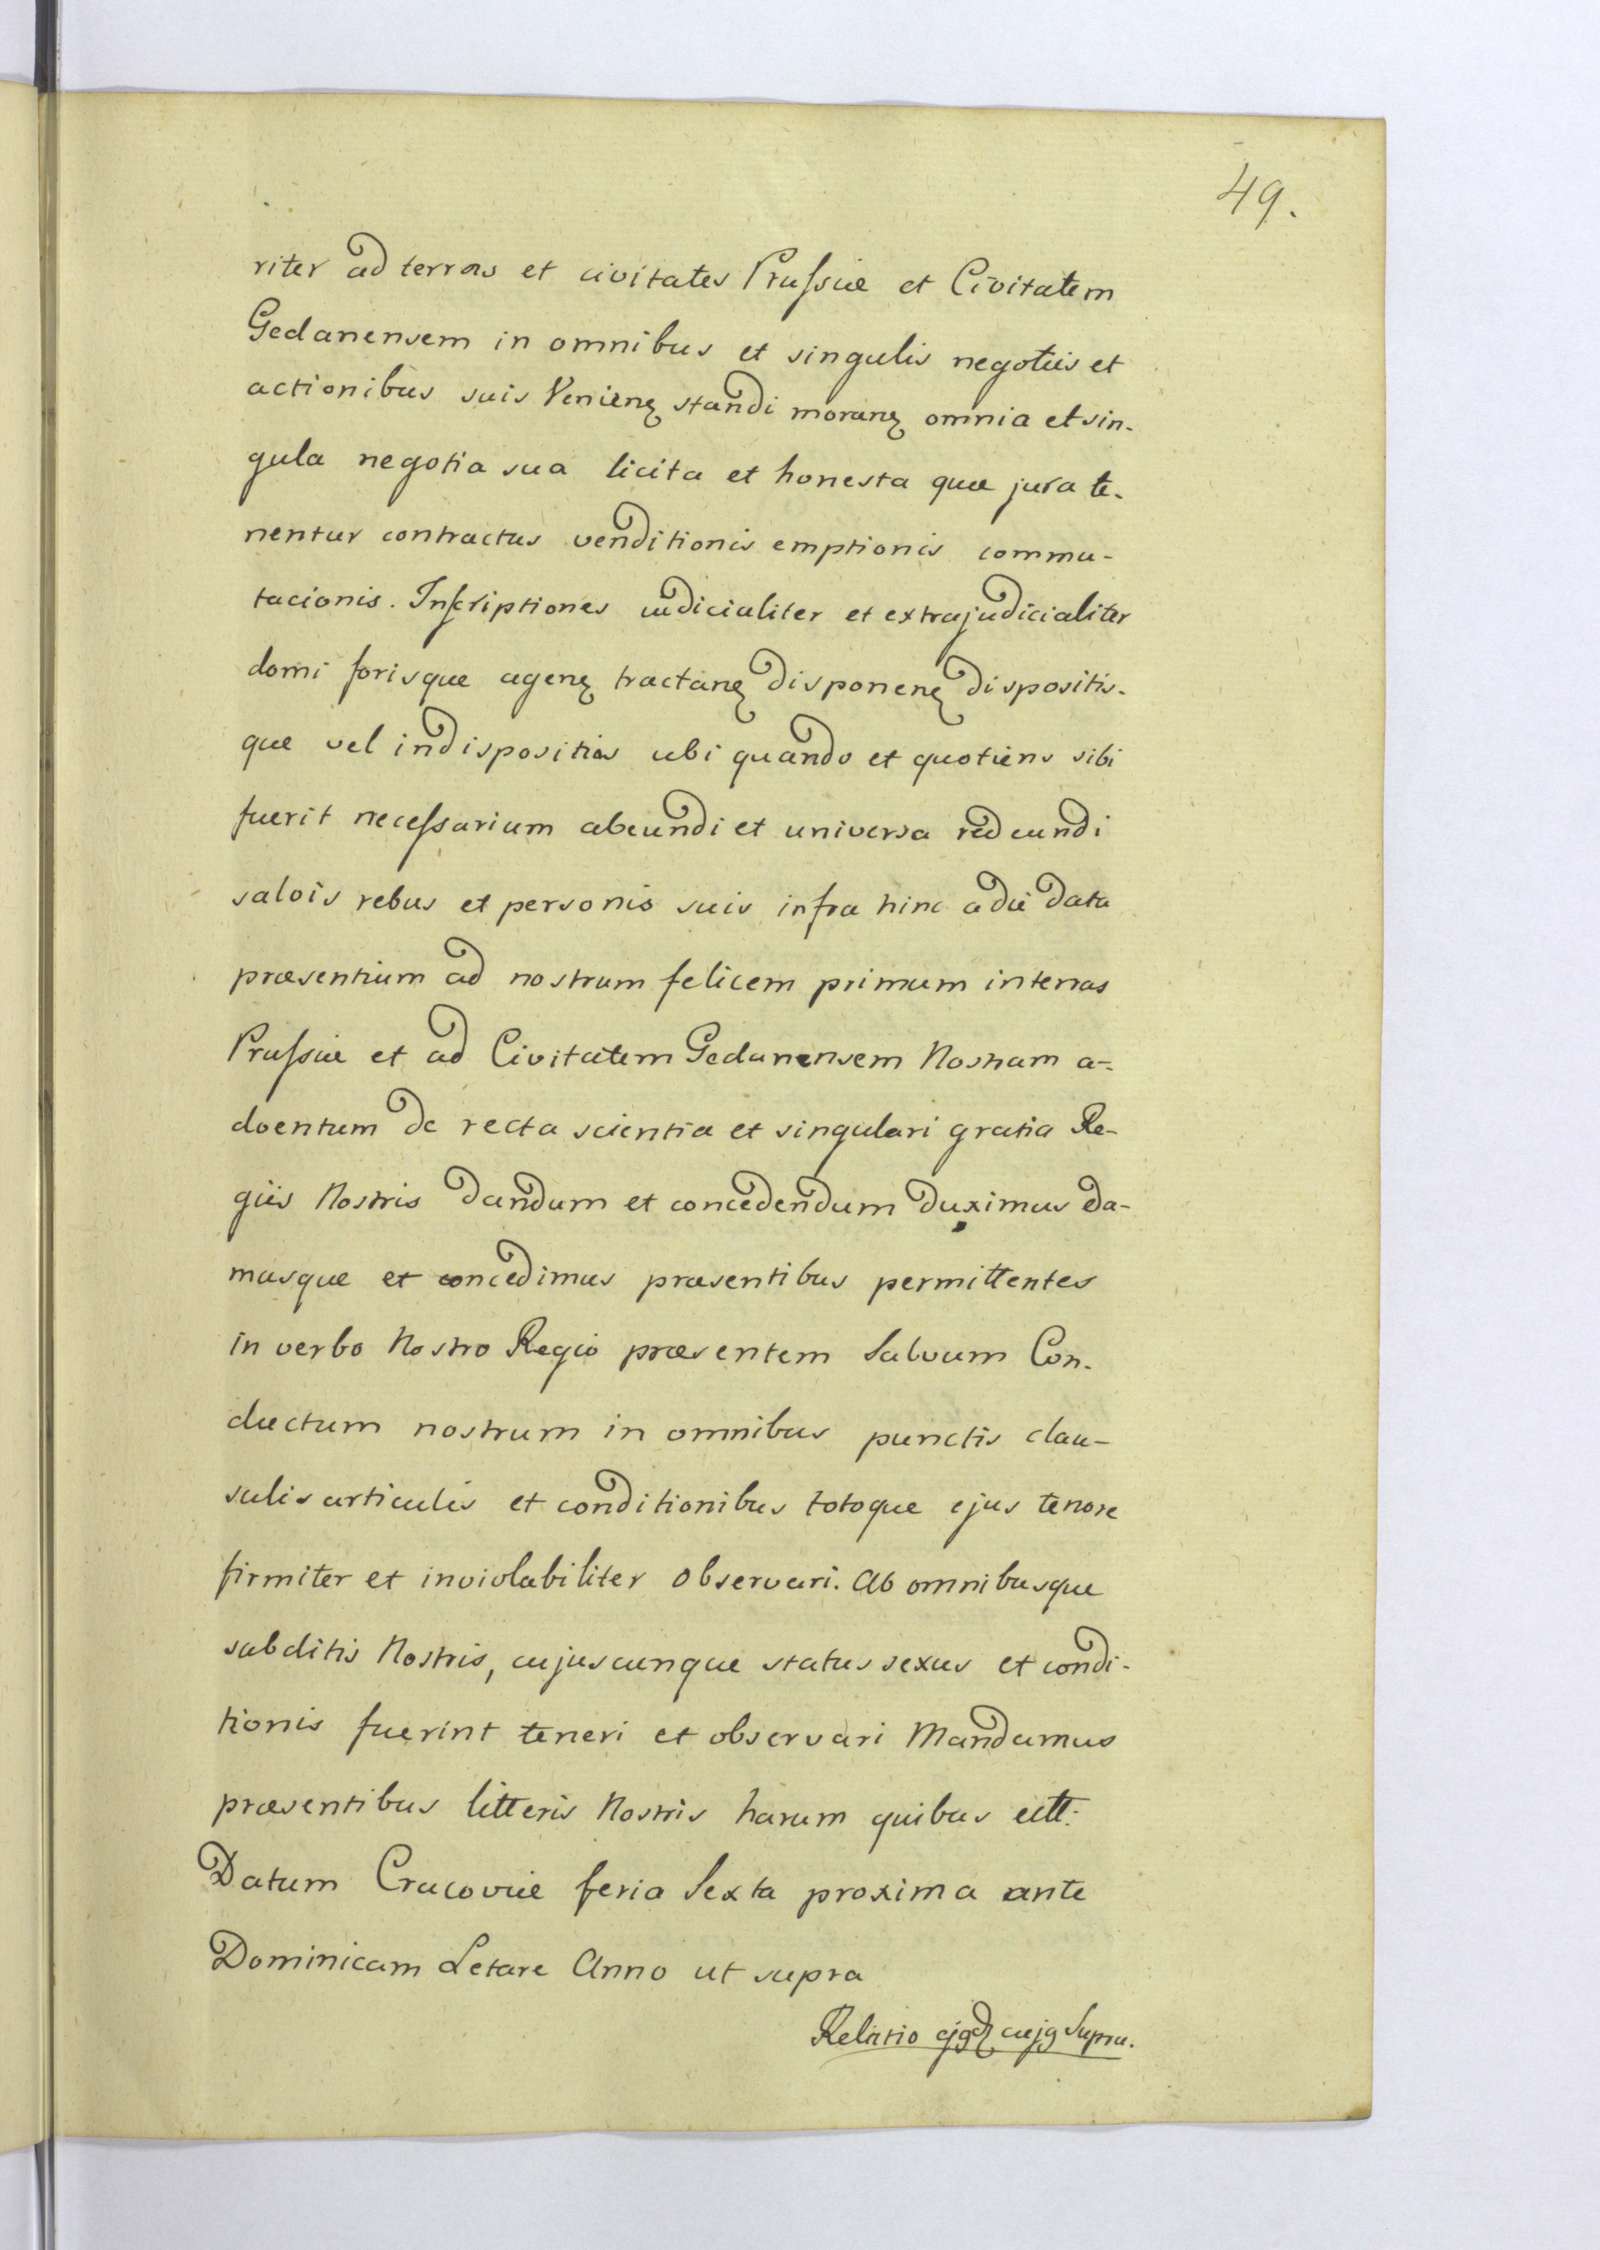 49.
riter ad terras et civitates Prussiæ et Civitatem
Gedanensem in omnibus et singulis negotiis et
actionibus suis Venienꝫ standi moranꝫ omnia et sin-
gula negotia sua licita et honesta quæ jura te-
nentur contractus venditionis emptionis commu-
tacionis. Inscriptiones iudicialiter et extrajudicialiter
domi forisque agenꝫ tractanꝫ disponenꝫ dispositis-
que vel indispositis ubi quando et quotiens sibi
fuerit necessarium abeundi et universa redeundi
salvis rebus et personis suis infra hinc a die data
præsentium ad nostrum felicem primum in terras
Prussiæ et ad Civitatem Gedanensem Nostram a-
dventum de recta scientia et singulari gratia Re-
giis Nostris dandum et concedendum duximus da-
musque et concedimus præsentibus permittentes
in verbo Nostro Regio præsentem Salvum Con-
ductum nostrum in omnibus punctis clau-
sulis articulis et conditionibus totoque ejus tenore
firmiter et inviolabiliter observari. Ab omnibusque
subditis Nostris, cujuscunque status sexus et condi-
tionis fuerint teneri et observari Mandamus
præsentibus litteris Nostris harum quibus
Datum Cracoviæ feria Sexta proxima ante
Dominicam Letare Anno ut supra
Relatio ejꝯdꝫ cujꝯ Supra.